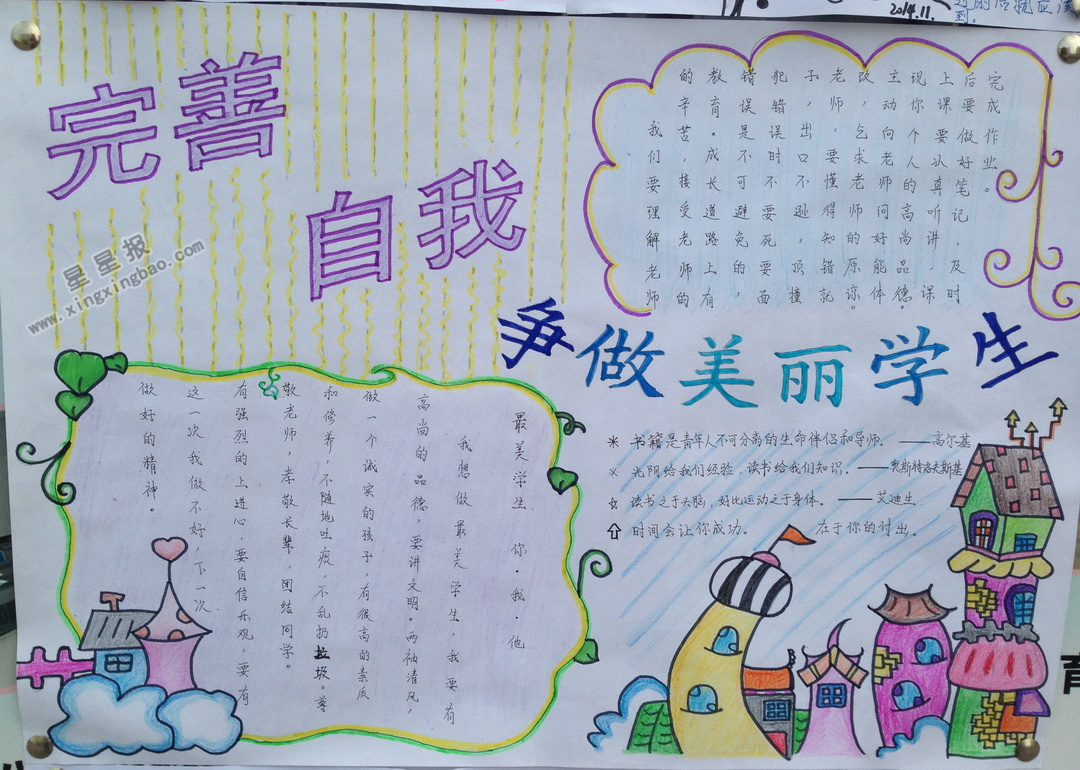 2014.11.
完善
自我
www.xingxingbao.com
星星报
我们要理解老师
的辛苦,接受老师的
教育。成长道路上有
错误是不可避免的,
犯错误时不要死要面
子,出口不逊,顶撞
老师,要懂得知错就
改,乞求老师的原谅。
主动向老师问好能体
现你个人的高尚品德.
上课要认真听讲.课
后要做好笔记,及时
完成作业。
争做美丽学生
书籍是青年人不可分离的生命伴侣和导师. ——高尔基
光阴给我们经验.读书给我们知识. ——奥斯特洛夫斯基
读书之于头脑,好比运动之于身体。 ——艾迪生
时间会让你成功。 在于你的付出。
最美学生 你·我·他
我想做最美学生,我要有
高尚的品德,要讲文明。两袖清风,
做一个诚实的孩子,有很高的素质
和修养,不随地吐痰,不乱扔垃圾。尊
敬老师,孝敬长辈,团结同学。
有强烈的上进心,要自信乐观,要有
这一次我做不好,下一次
做好的精神。